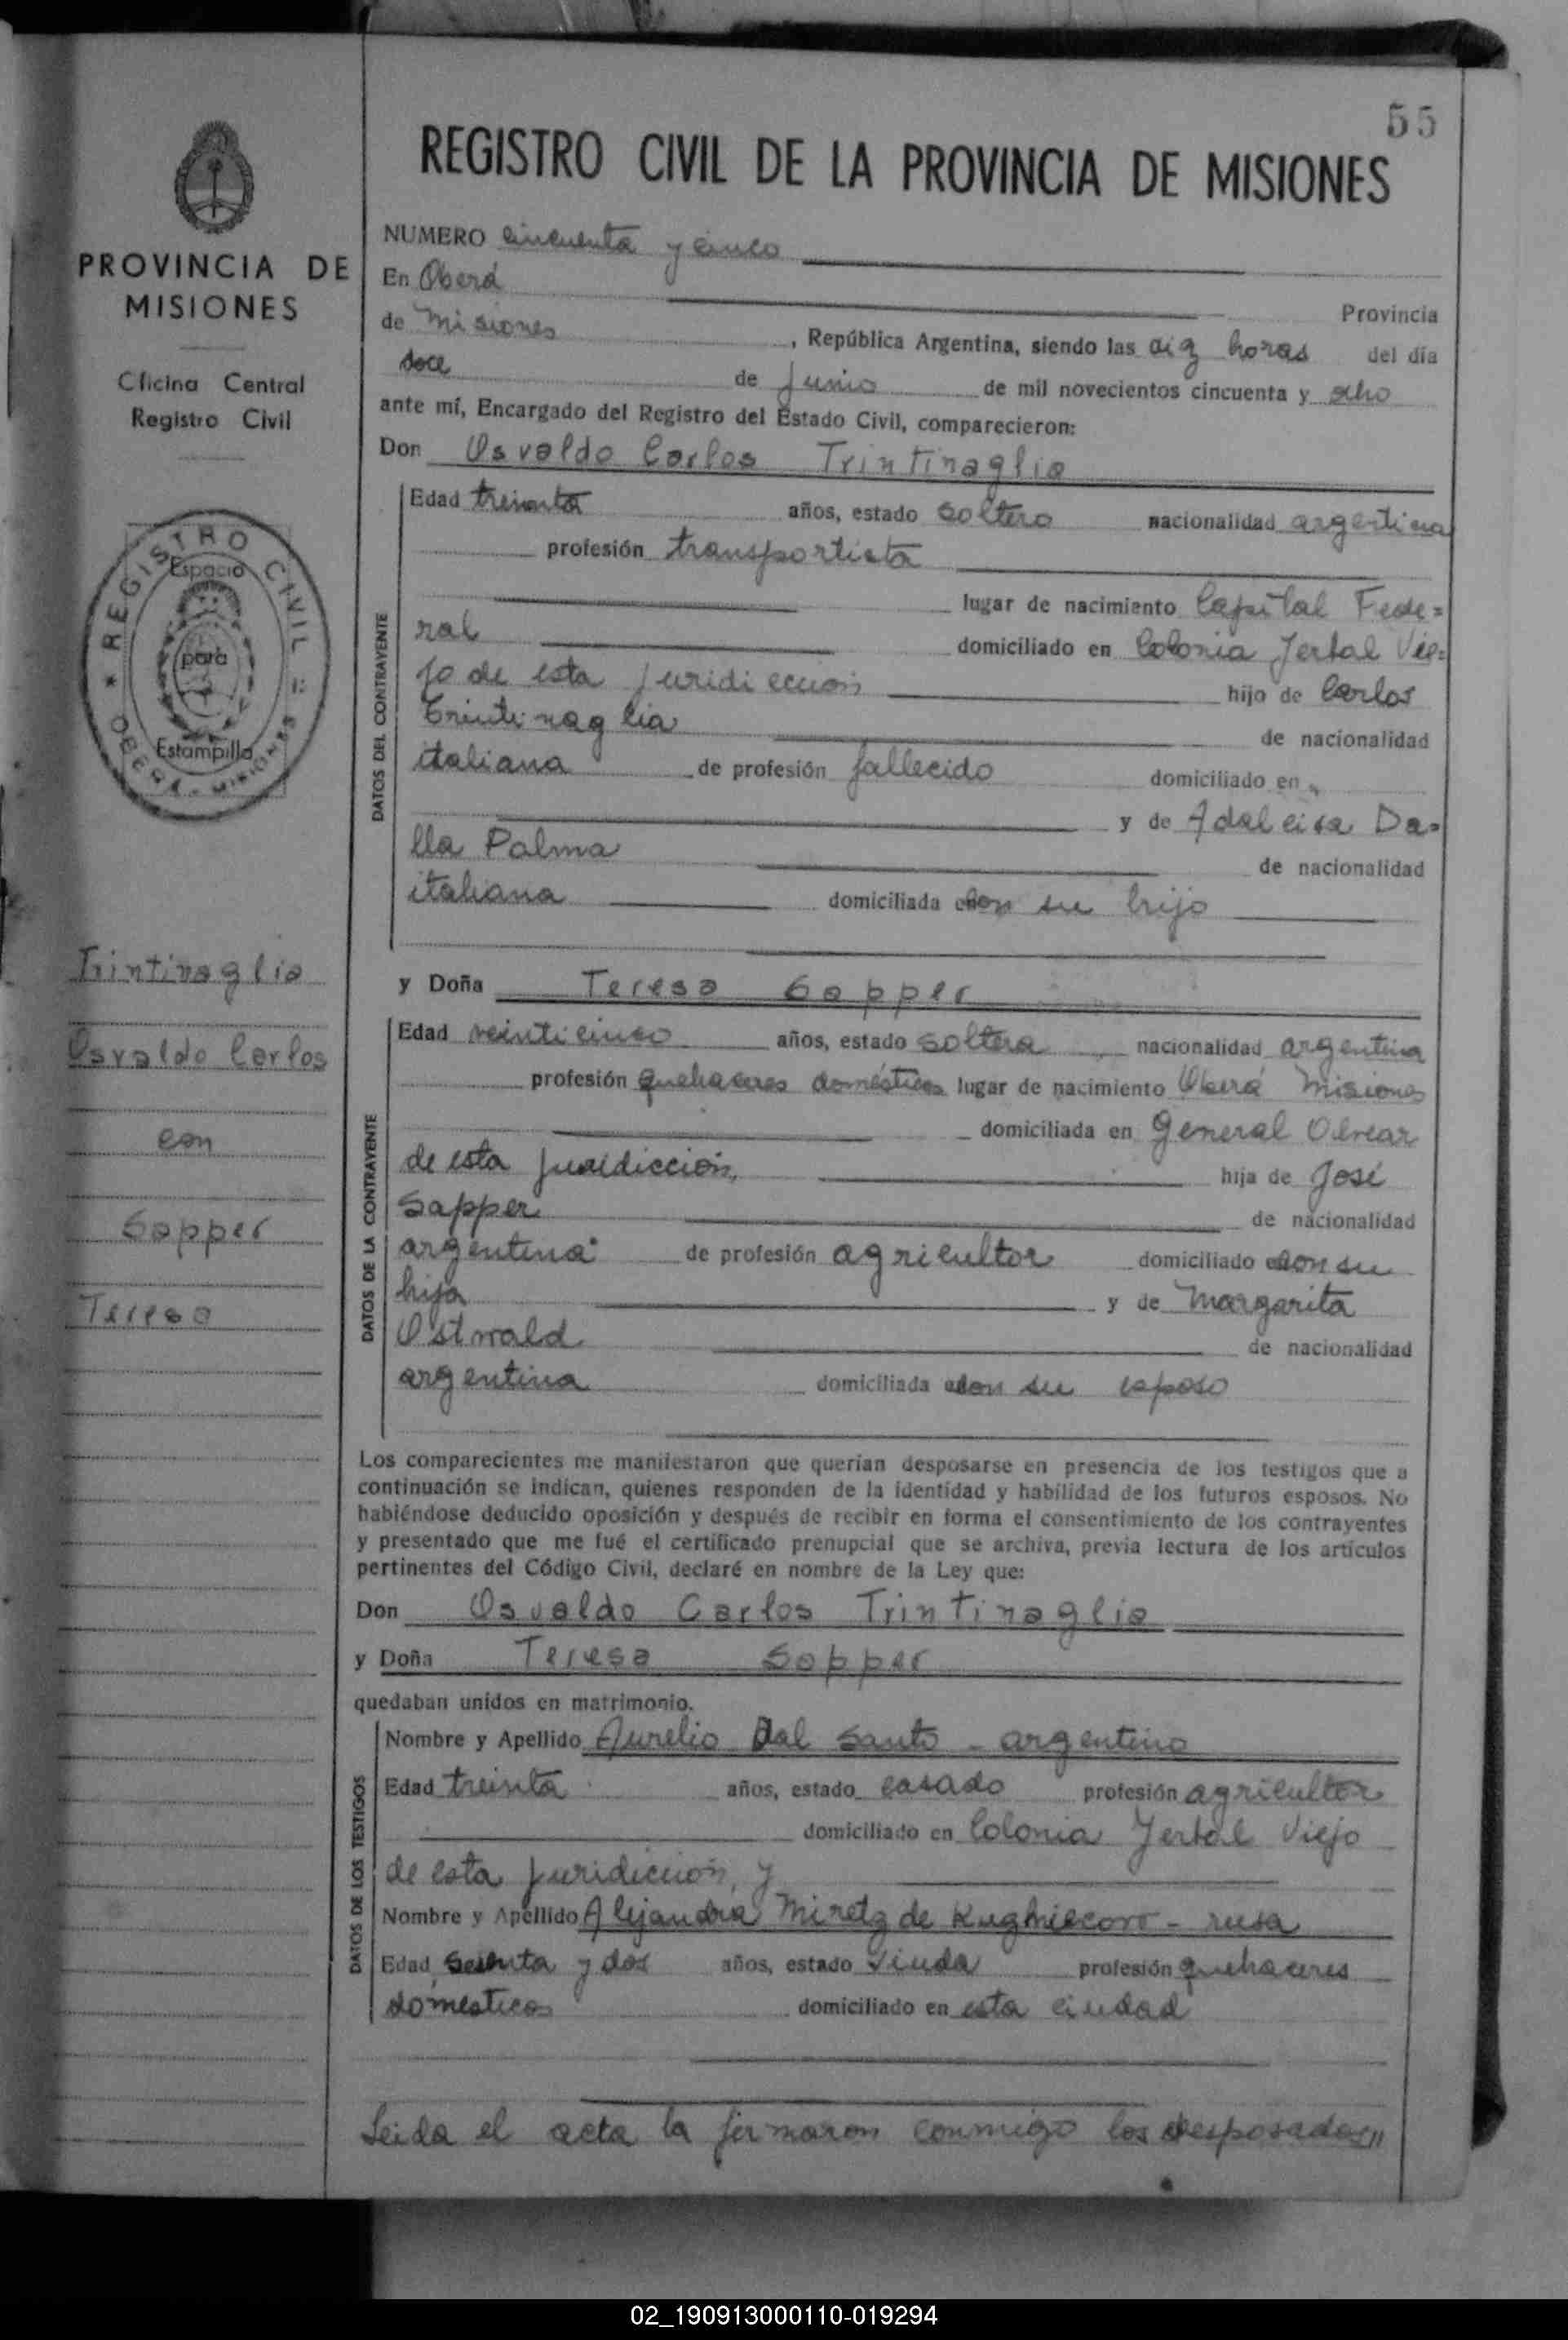 55
PROVINCIA DE
MISIONES
Oficina Central
Registro Civil
REGISTRO CIVIL
OBERA - MISIONES
Espacio
para
Estampilla
Trintinaglia
Osvaldo Carlos
con
Sapper
Teresa
REGISTRO CIVIL DE LA PROVINCIA DE MISIONES
NUMERO cincuenta y cinco
En Oberá Provincia
de Misiones, República Argentina, siendo las diez horas del día
doce de Junio de mil novecientos cincuenta y ocho
ante mí, Encargado del Registro del Estado Civil, comparecieron:
Don Osvaldo Carlos Trintinaglia
DATOS DEL CONTRAYENTE
Edad treinta años, estado soltero nacionalidad argentina
profesión transportista
lugar de nacimiento Capital Fede=
ral domiciliado en Colonia Yerbal Vie=
jo de esta juridiccion hijo de Carlos
Trintinaglia de nacionalidad
italiana de profesión fallecido domiciliado en
y de Adalcisa Da=
lla Palma de nacionalidad
italiana domiciliada con su hijo
y Doña Teresa Sapper
DATOS DE LA CONTRAYENTE
Edad veinticinco años, estado soltera nacionalidad argentina
profesión quehaceres domésticos lugar de nacimiento Oberá Misiones
domiciliada en General Alvear
de esta juridicción, hija de José
Sapper de nacionalidad
argentina de profesión agricultor domiciliado con su
hija y de Margarita
Ostwald de nacionalidad
argentina domiciliada con su esposo
Los comparecientes me manifestaron que querían desposarse en presencia de los testigos que a
continuación se indican, quienes responden de la identidad y habilidad de los futuros esposos. No
habiéndose deducido oposición y después de recibir en forma el consentimiento de los contrayentes
y presentado que me fué el certificado prenupcial que se archiva, previa lectura de los artículos
pertinentes del Código Civil, declaré en nombre de la Ley que:
Don Osvaldo Carlos Trintinaglia
y Doña Teresa Sapper
quedaban unidos en matrimonio.
DATOS DE LOS TESTIGOS
Nombre y Apellido Aurelio Dal Santo - argentino
Edad treinta años, estado casado profesión agricultor
domiciliado en Colonia Yerbal Viejo
de esta juridiccion, y
Nombre y Apellido Alejandra Miretz de - rusa
Edad sesenta y dos años, estado viuda profesión quehaceres
domesticos domiciliado en esta ciudad
Leida el acta la firmaron conmigo los desposados,,
02_190913000110-019294